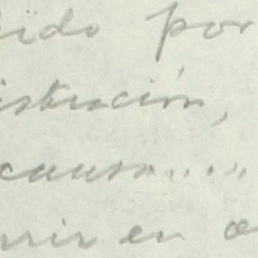 ído por
istración,
causa....
rir en